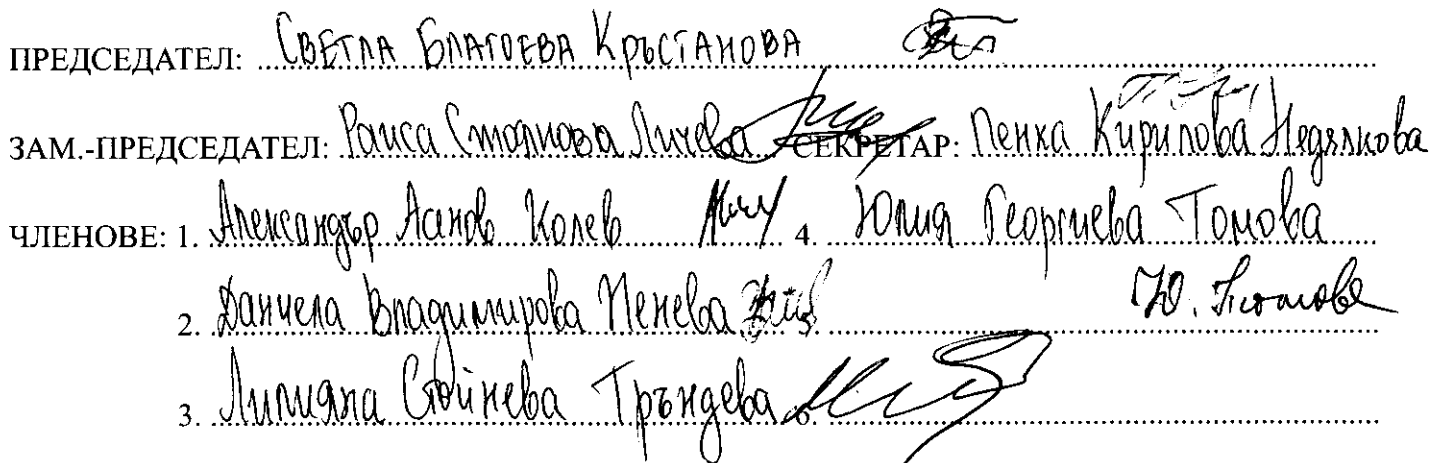 ПРЕДСЕДАТЕЛ: СВЕТЛА БЛАГОЕВА КРЪСТАНОВА
ЗАМ.-ПРЕДСЕДАТЕЛ: Раиса Стоянова Личева СЕКРЕТАР: Пенка Кирилова Недялкова
ЧЛЕНОВЕ: 1. Александър Асенов Колев 4. Юлия Георгиева Томова
2. Даниела Владимирова Пенева Ю. Томова
3. Лилияна Стойнева Тръндева 6.